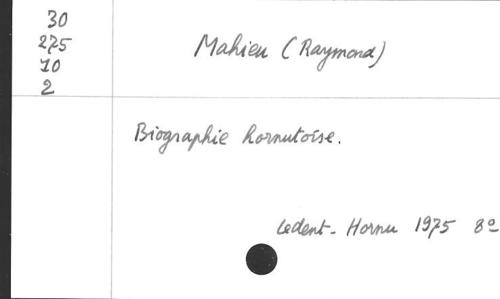 30
275
10
2
Mahieu (Raymond)
Biographie hornutoise.
Ledent - Hornu 1975 8º